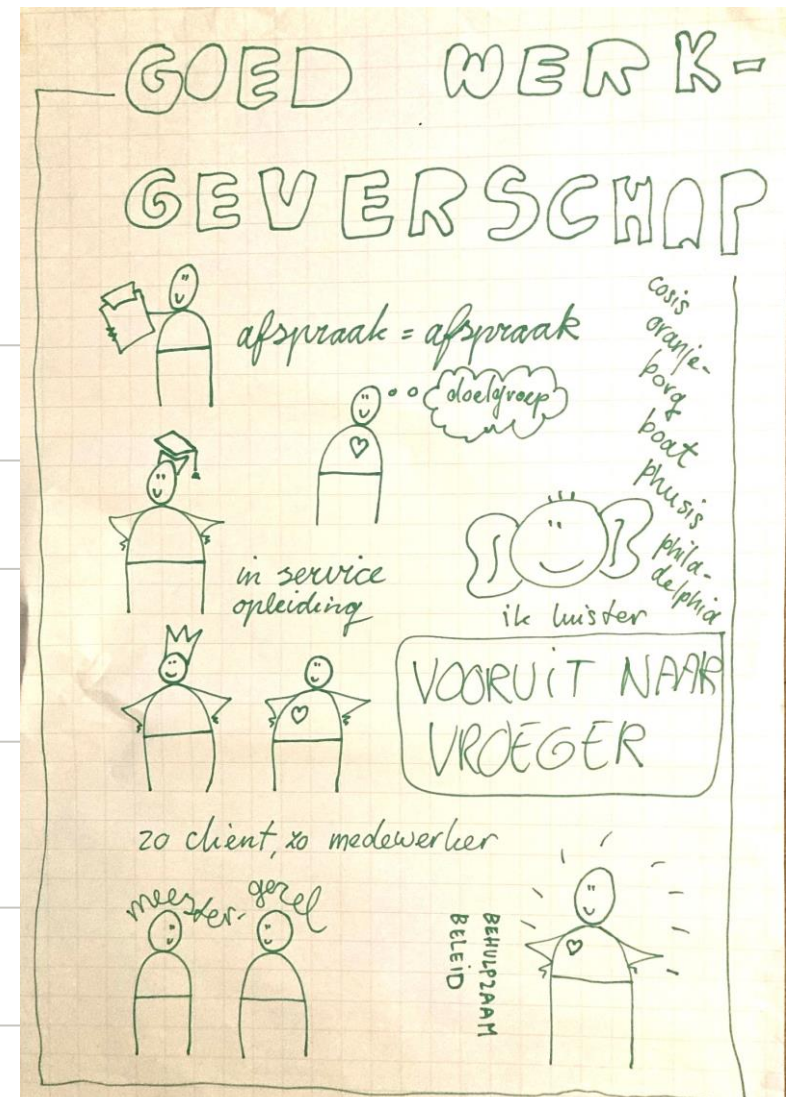 GOED WERK-
GEVERSCHAP
afspraak = afspraak
doelgroep
cosis
oranje-
borg
boat
phusis
phila-
delphia
in service
opleiding
ik luister
VOORUIT NAAR
VROEGER
zo cliënt, zo medewerker
meester-
gezel
BEHULPZAAM
BELEID